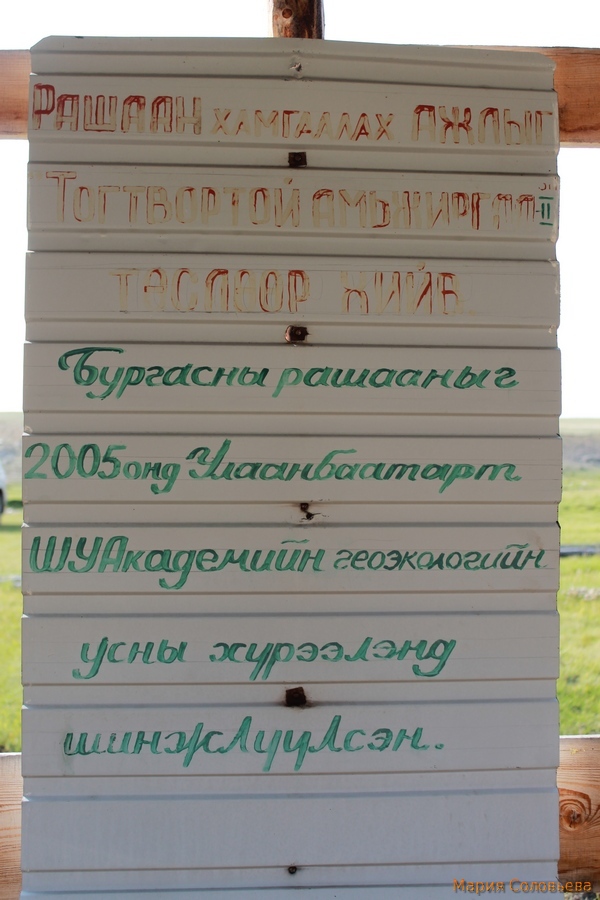 Рашаан хамгаалах ажлыг
Тогтвортой амьжиргаа-II
төслөөр хийв
Бургасны рашааныг
2005онд Улаанбаатарт.
ШУАкадемийн геоэкологийн
усны хүрээлэнд
шинжЛүүЛсэн.
Мария Соловьева